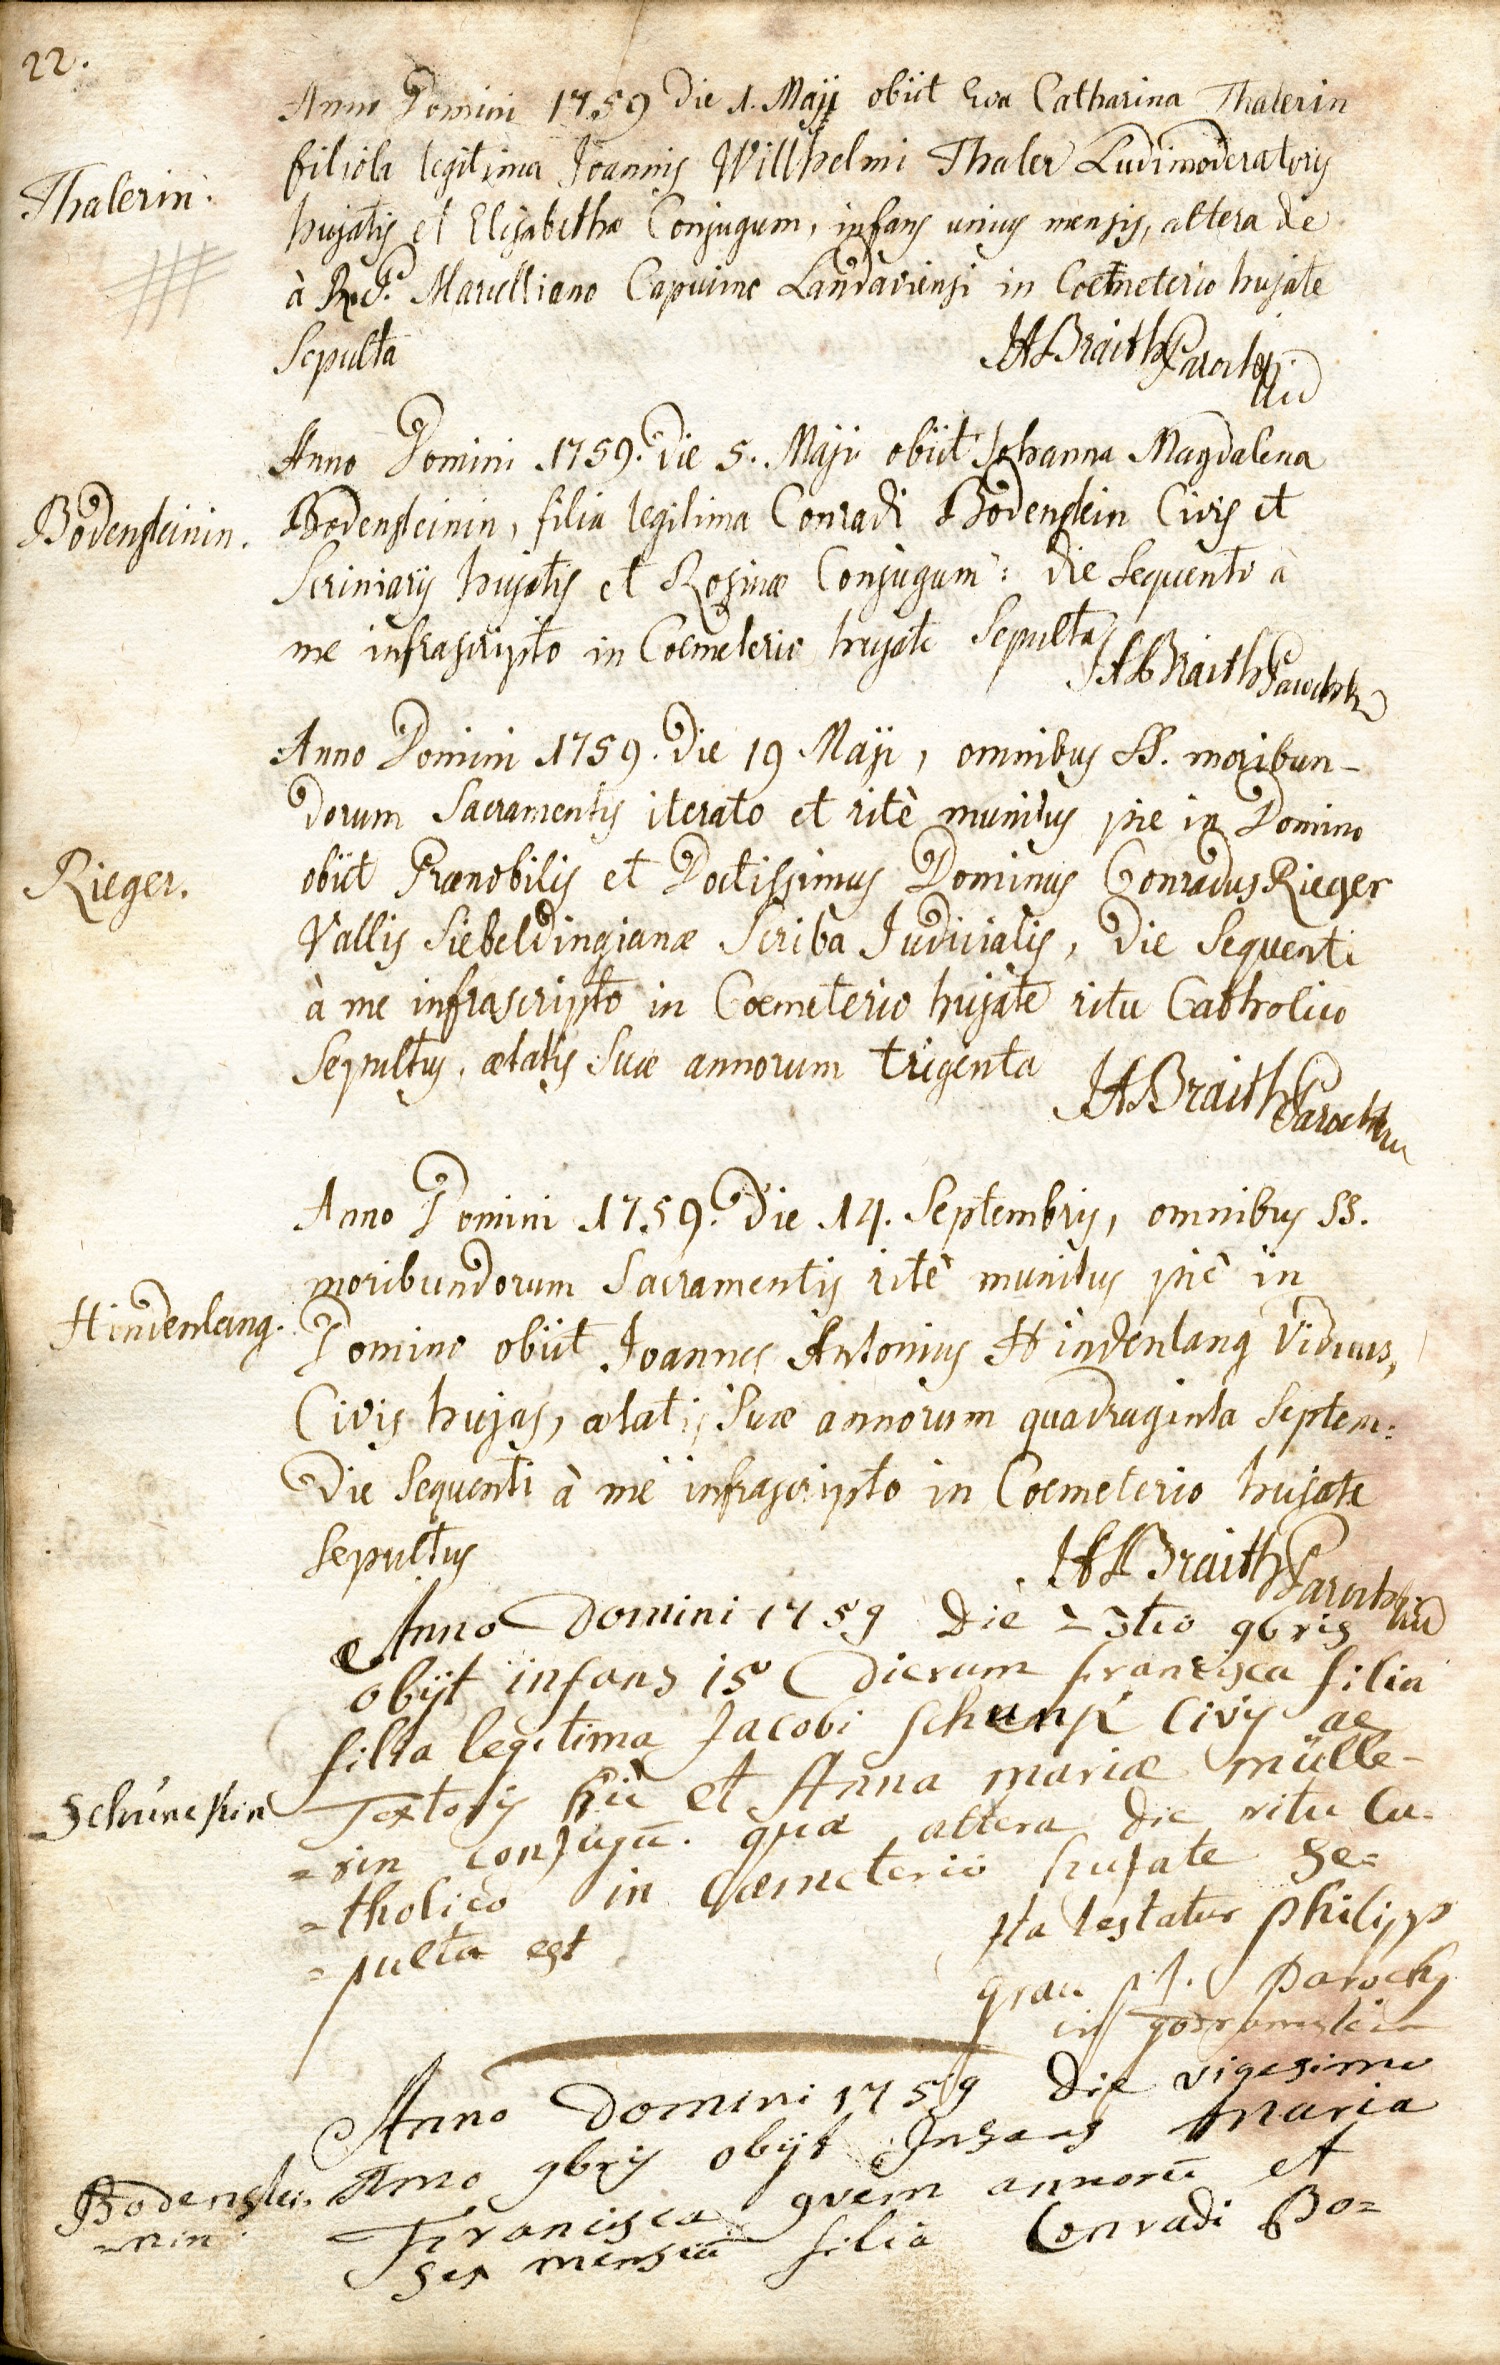 22.
Anno Domini 1759 die 1. Maji obiit Eva Catharina Thalerin
filiola legitima Joannis Willhelmi Thaler Ludimoderatoris
Thalerin.
hujatis et Elisabethæ Conjugum, infans unius mensis, altera die
à Rd. Marcelliano Capucino Landaviensi in Coemeterio hujate
Sepulta
HABraith Parochus
Anno Domini 1759. die 5. Maji obiit Johanna Magdalena
Bodensteinin.
Bodensteinin, filia legitima Conradi Bodenstein Civis et
Scriniarij hujatis et Rosinæ Conjugum: die Sequenti à
me infrascripto in Coemeterio hujate Sepulta
HABraith Parochus
Anno Domini 1759. die 19 Maji, omnibus SS. moribun-
dorum Sacramentis iterato et ritè munitus pie in Domino
Rieger.
obiit Prænobilis et Doctissimus Dominus Conradus Rieger
Vallis Siebeldingianæ Scriba Judicialis, die Sequenti
à me infrascripto in Coemeterio hujate ritu Catholico
Sepultus, ætatis Suæ annorum trigenta
HABraith Parochus
Anno Domini 1759. die 14. Septembris, omnibus SS.
moribundorum Sacramentis ritè munitus piè in
Hindenlang.
Domino obiit Joannes Antonius Hindenlang Viduus,
Civis hujas, ætatis Suæ annorum quadraginta Septem:
die Sequenti à me infrascripto in Coemeterio hujate
Sepultus
HABraith Parochus
Anno Domini 1759 die 9bris
obijt infans 15 dierum francisca filia
filia legitima Jacobi Civis ac
Textoris hic et Anna mariæ mülle-
=rin conjugū. quæ altera die ritu Ca-
=tholico in Cæmeterio hujate Se=
=pulta est
Ita testatur philipp
grau p.t. parochus
in
Anno Domini 1759 die vigesimo
Bodenstei.
=nin.
9bris obijt Infans Maria
Francisca annorū et
Sex mensiū filia Conradi Bo=